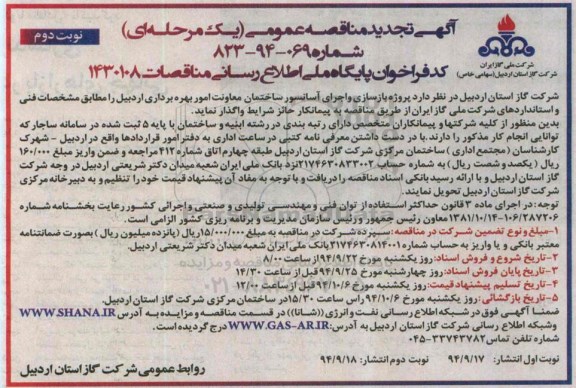 آگهی تجدید مناقصه عمومی (یک مرحله‌ای)
نوبت دوم
شماره ۰۶۹-۹۴-۸۲۳
کدفراخوان پایگاه ملی اطلاع رسانی مناقصات ۱۴۳۰۱۰۸
شرکت ملی گاز ایران
شرکت گاز استان اردبیل (سهامی خاص)
شرکت گاز استان اردبیل در نظر دارد پروژه بازسازی واجرای آسانسور ساختمان معاونت امور بهره برداری اردبیل را مطابق مشخصات فنی
و استانداردهای شرکت ملی گاز ایران از طریق مناقصه به پیمانکار حائز شرایط واگذار نماید.
بدین منظور از کلیه شرکتها و پیمانکاران متخصص دارای رتبه بندی در رشته ابنیه و ساختمان با پایه ۵ ثبت شده در سامانه ساجار که
توانایی انجام کار مذکور را دارند با در دست داشتن معرفی نامه کتبی در ساعت اداری به دفتر امور قراردادها واقع در اردبیل - شهرک
کارشناسان (مجتمع اداری) ساختمان مرکزی شرکت گاز استان اردبیل طبقه چهارم اتاق شماره ۴۱۲ مراجعه و ضمن واریز مبلغ ۱۶۰/۰۰۰
ریال (یکصد و شصت ریال) به شماره حساب ۲۱۷۴۶۳۰۸۳۳۰۰۲ نزد بانک ملی ایران شعبه میدان دکتر شریعتی اردبیل در وجه شرکت
گاز استان اردبیل و با ارائه رسید بانکی اسناد مناقصه را دریافت و با توجه به مفاد آن پیشنهاد قیمت خود را تنظیم و به دبیرخانه مرکزی
شرکت گاز استان اردبیل تحویل نمایند.
توجه: در اجرای ماده ۳ قانون حداکثر استفاده از توان فنی و مهندسی تولیدی و صنعتی و اجرائی کشور رعایت بخشنامه شماره
۱۰۶/۲۸۷۲۰۶-۱۳۸۱/۱۰/۱۴ معاون رئیس جمهور و رئیس سازمان مدیریت و برنامه ریزی کشور الزامی است.
۱-مبلغ و نوع تضمین شرکت در مناقصه: سپرده شرکت در مناقصه به مبلغ ۱۵/۰۰۰/۰۰۰ ریال (پانزده میلیون ریال) بصورت ضمانتنامه
معتبر بانکی و یا واریز به حساب شماره ۲۱۷۴۶۳۰۸۱۴۰۰۱ بانک ملی ایران شعبه میدان دکتر شریعتی اردبیل.
۲-تاریخ شروع و فروش اسناد: روز یکشنبه مورخ ۹۴/۹/۲۲ از ساعت ۸/۰۰
۳-تاریخ پایان فروش اسناد: روز چهارشنبه مورخ ۹۴/۹/۲۵ قبل از ساعت ۱۴/۳۰
۴-تاریخ تسلیم پیشنهاد قیمت: روز یکشنبه مورخ ۹۴/۱۰/۶ قبل از ساعت ۱۲/۰۰
۵-تاریخ بازگشائی: روز یکشنبه مورخ ۹۴/۱۰/۶ راس ساعت ۱۵/۳۰ در ساختمان مرکزی شرکت گاز استان اردبیل.
ضمناً آگهی فوق در شبکه اطلاع رسانی نفت و انرژی ((شانا)) در قسمت مناقصه و مزایده به آدرس WWW.SHANA.IR
وشبکه اطلاع رسانی شرکت گاز استان اردبیل به آدرس: WWW.GAS-AR.IR درج گردیده است.
شماره تلفن تماس ۳۳۷۴۳۷۸۲-۰۴۵
نوبت اول انتشار: ۹۴/۹/۱۷ نوبت دوم انتشار: ۹۴/۹/۱۸
روابط عمومی شرکت گاز استان اردبیل